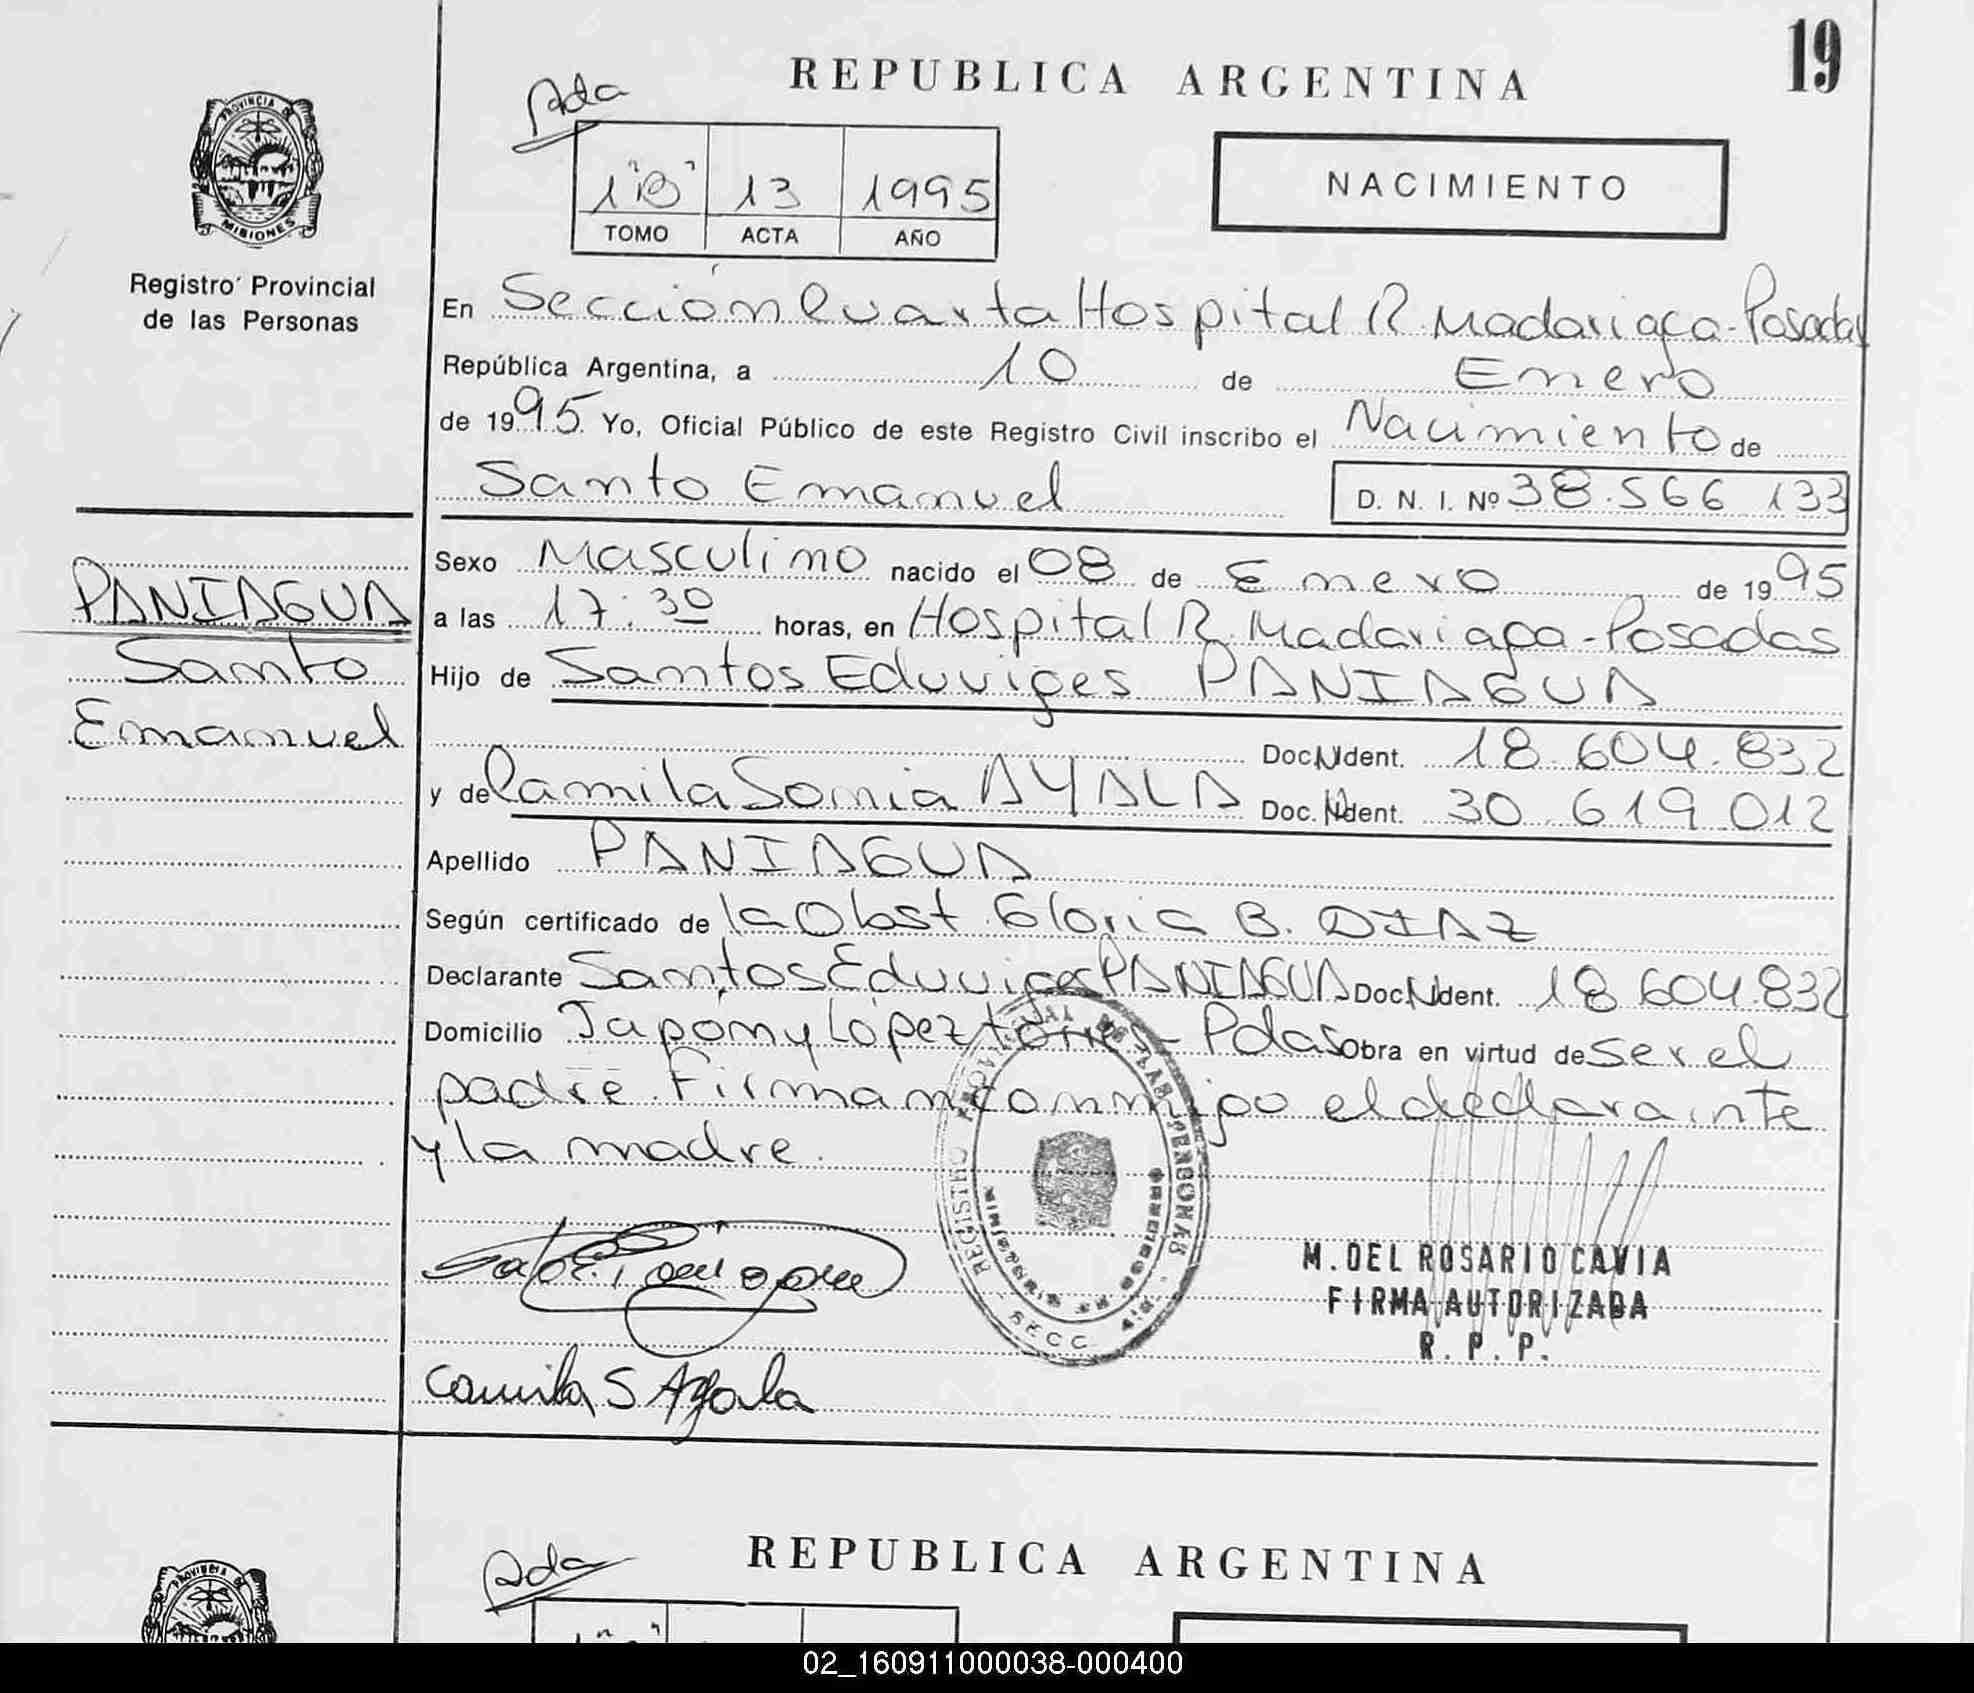 19
REPUBLICA ARGENTINA
Ada
PROVINCIA DE
MISIONES
1 "B" 13 1995
TOMO ACTA AÑO
NACIMIENTO
Registro Provincial
de las Personas
En Sección Cuarta Hospital R. Madariaga - Posadas
República Argentina, a 10 de Enero
de 1995 Yo, Oficial Público de este Registro Civil inscribo el Nacimiento de
Santo Emanuel D. N. I. Nº 38.566.133
PANIAGUA
Santo
Emanuel
Sexo Masculino nacido el 08 de Enero de 1995
a las 17:30 horas, en Hospital R. Madariaga - Posadas
Hijo de Santos Eduviges PANIAGUA
Doc. N Ident. 18.604.832
y de Camila Sonia AYALA Doc. N Ident. 30.619.012
Apellido PANIAGUA
Según certificado de la Obst. Gloria B. DIAZ
Declarante Santos Eduviges PANIAGUA Doc. N Ident. 18.604.832
Domicilio Japón y López torres - Pdas Obra en virtud de ser el
padre. Firman conmigo el declarante
y la madre.
REGISTRO PROVINCIAL DE LAS PERSONAS
SECC
M. DEL ROSARIO CAVIA
FIRMA AUTORIZADA
R. P. P.
Camila S Ayala
REPUBLICA ARGENTINA
Ada
02_160911000038-000400